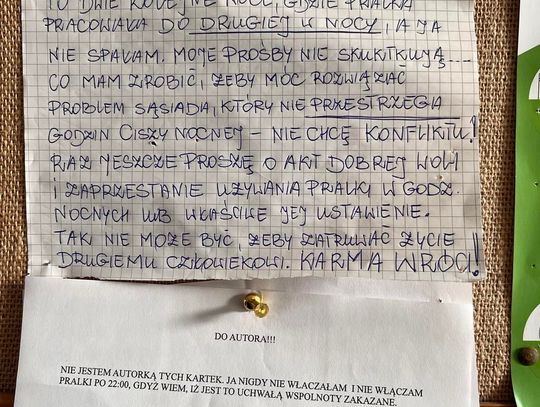 TO DWIE KOLEJNE NOCE, GDZIE PRALKA
PRACOWAŁA DO DRUGIEJ W NOCY, A JA
NIE SPAŁAM. MOJE PROŚBY NIE SKUTKUJĄ....
CO MAM ZROBIĆ, ŻEBY MÓC ROZWIĄZAĆ
PROBLEM SĄSIADA, KTÓRY NIE PRZESTRZEGA
GODZIN CISZY NOCNEJ – NIE CHCĘ KONFLIKTU!
RAZ JESZCZE PROSZĘ O AKT DOBREJ WOLI
I ZAPRZESTANIE UŻYWANIA PRALKI W GODZ.
NOCNYCH LUB WŁAŚCIWE JEJ USTAWIENIE.
TAK NIE MOŻE BYĆ, ŻEBY ZATRUWAĆ ŻYCIE
DRUGIEMU CZŁOWIEKOWI. KARMA WRÓCI!!
DO AUTORA!!!
NIE JESTEM AUTORKĄ TYCH KARTEK. JA NIGDY NIE WŁACZAŁAM I NIE WŁĄCZAM
PRALKI PO 22:00, GDYŻ WIEM, IŻ JEST TO UCHWAŁĄ WSPOLNOTY ZAKAZANE.